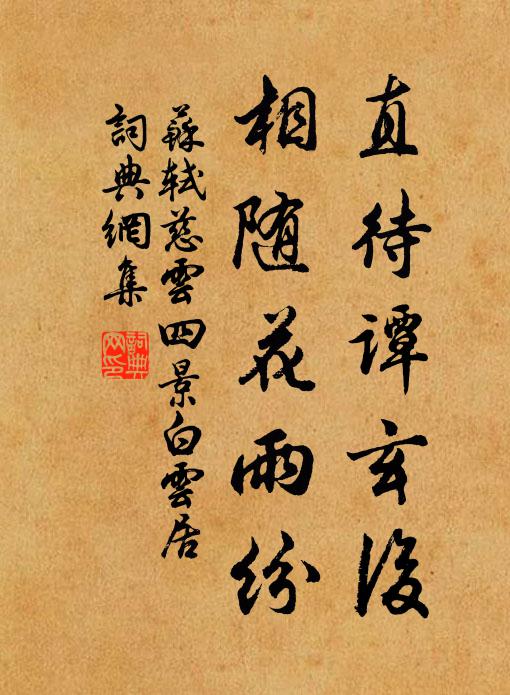 直待谭玄後
相随花雨纷
蘇軾慈雲四景白雲居
詞典網集
詞典网印